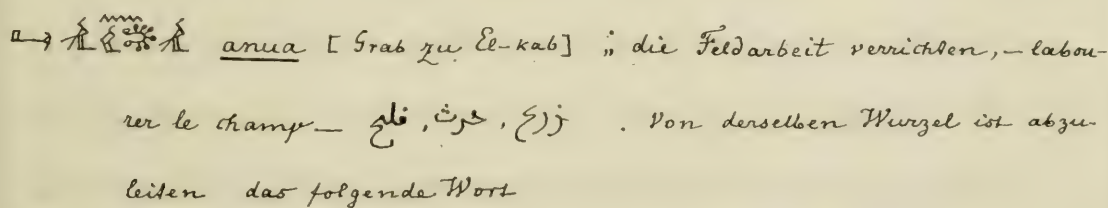 anua [Grab zu El-kab] ; die Feldarbeit verrichten, – labou-
rer le champ – زرع , حرث , فلح . Von derselben Wurzel ist abzu-
leiten das folgende Wort